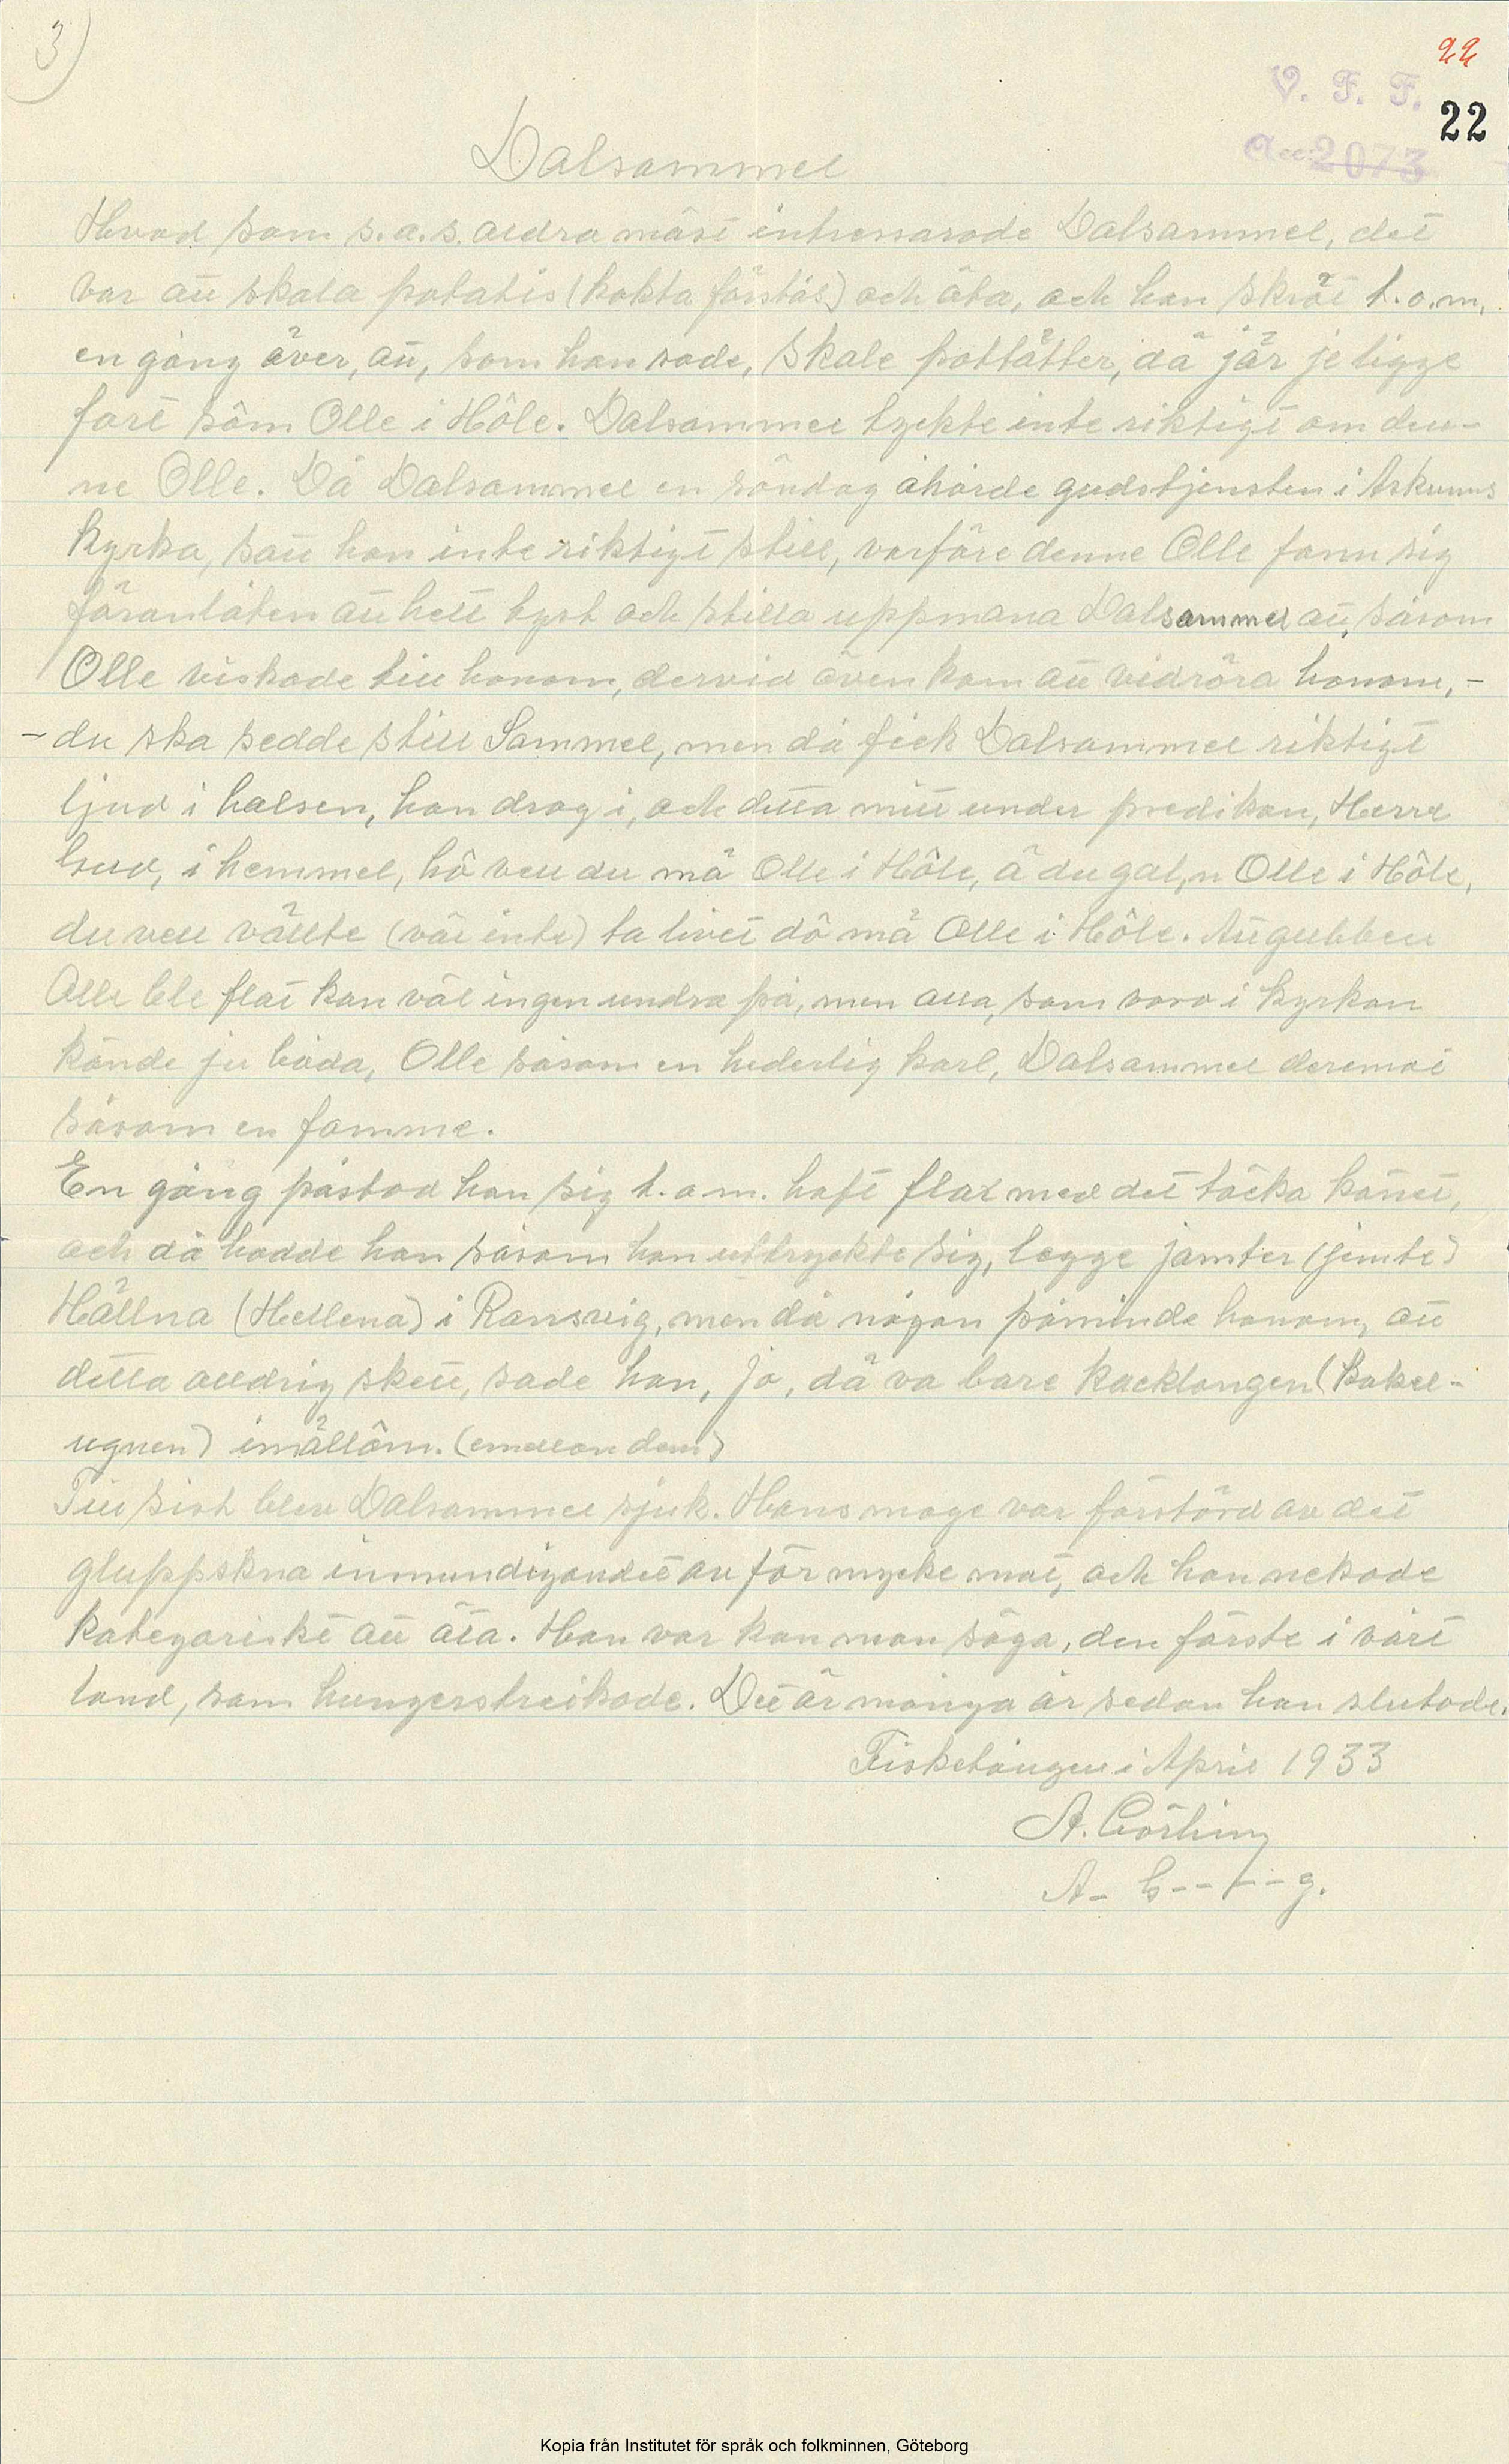 3)
22
V. F. F.
22
Acc: 2073
Dalsammel
Hvad som s.a.s. aldra mäst intresserade Dalsammel, det
var att skala potatis (kokta förstås) och äta, och han skröt t.o.m.
en gång över, att, som han sade, skale pottätter, dä jär je ligge
fort sôm Olle i Hôle. Dalsammel tyckte inte riktigt om den-
ne Olle. Då Dalsammel en söndag åhörde gudstjensten i Askums
kyrka, satt han inte riktigt still, varföre denne Olle fann sig
föranlåten att helt tyst och stilla uppmana Dalsammel att, såsom
Olle viskade till honom, dervid även kom att vidröra honom, -
- du ska sedde still Sammel, men då fick Dalsammel riktigt
ljud i halsen, han drog i, och detta mitt under predikan, Herre
Gud, i hemmel, hô vell du mä Olle i Hôle, ä du gal,n Olle i Hôle,
du vell vällte (väl inte) ta livet dô mä Olle i Hôle. Att gubben
Olle ble flat kan väl ingen undra på, men alla, som voro i kyrkan
kände ju båda, Olle såsom en hederlig karl, Dalsammel deremot
såsom en famme.
En gång påstod han sig t.o.m. haft flax med det täcka könet,
och då hadde han såsom han uttryckte sig, legge jamter (jemte)
Hällna (Hellena) i Ransvig, men då någon påminde honom, att
detta alldrig skett, sade han, jo, dä va bare kacklangen (kakel-
ugnen) imällôm. (emellan dem)
Till sist blev Dalsammel sjuk. Hans mage var förstörd av det
gluppskna inmundigandet av för mycke mat, och han nekade
kategoriskt att äta. Han var kan man säga, den förste i vårt
land, som hungerstreikade. Det är många år sedan han slutade.
Fisketången i April 1933
A. Göthing
A- G--t--g.
Kopia från Institutet för språk och folkminnen, Göteborg